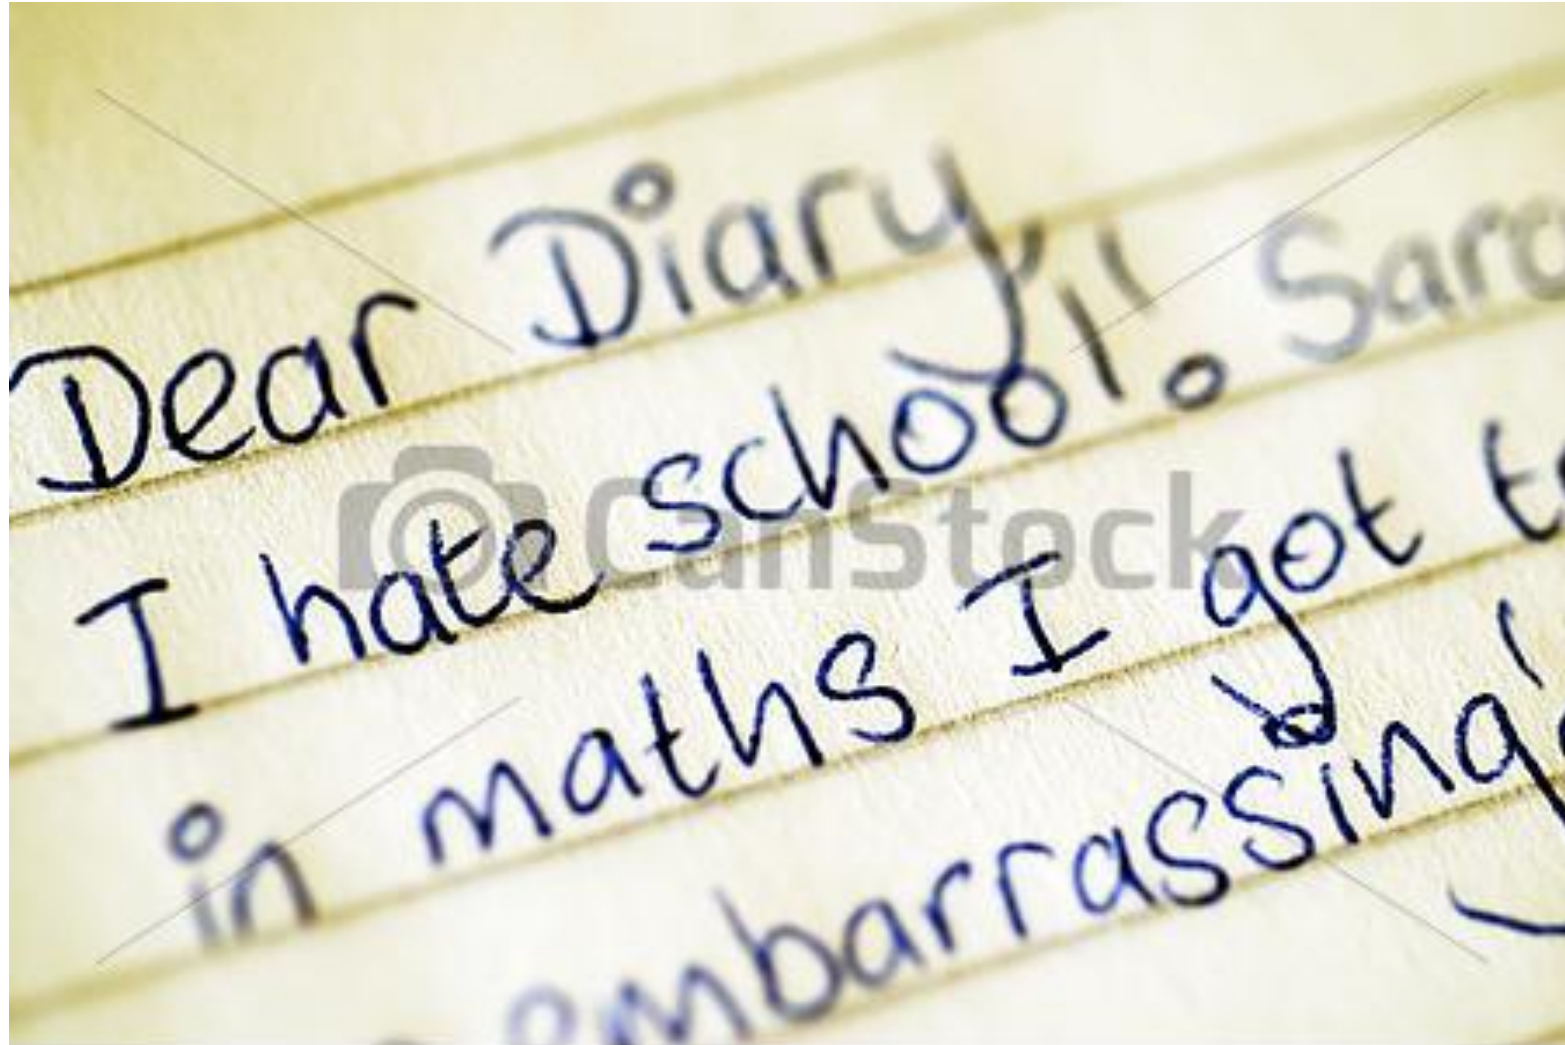 Dear Diary,
I hate school!. Sara
in maths I got to
embarrassing!
CanStock